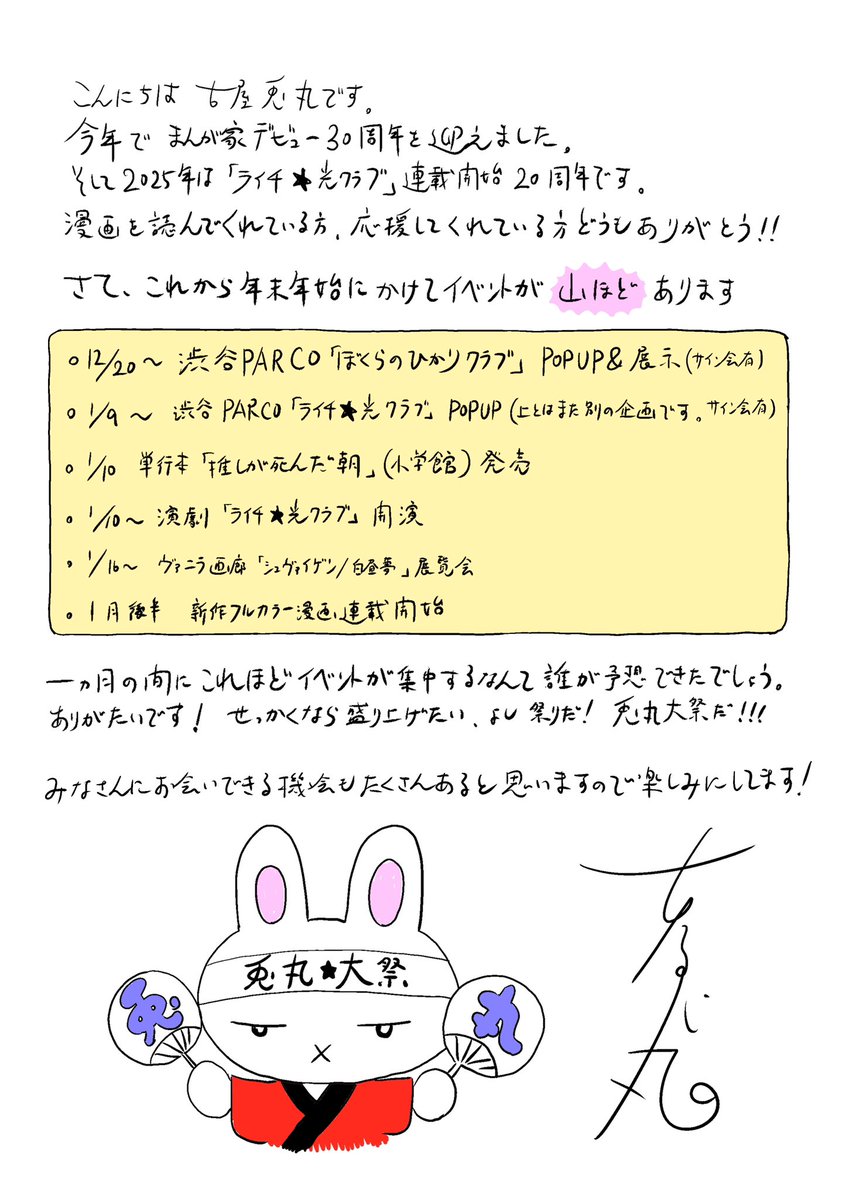 こんにちは 古屋兎丸です。
今年で まんが家デビュー30周年を迎えました。
そして2025年は「ライチ★光クラブ」連載開始20周年です。
漫画を読んでくれている方、応援してくれている方どうもありがとう!!
さて、これから年末年始にかけてイベントが 山ほど あります
○12/20〜 渋谷PARCO「ぼくらのひかりクラブ」 POPUP&展示(サイン会有)
○1/9〜 渋谷PARCO「ライチ★光クラブ」 POPUP(上とはまた別の企画です。サイン会有)
○1/10 単行本「推しが死んだ朝」(小学館)発売
○1/10〜 演劇「ライチ★光クラブ」開演
○1/16〜 ヴァニラ画廊「シュヴァイゲン/白昼夢」展覧会
○1月後半 新作フルカラー漫画連載開始
一ヵ月の間にこれほどイベントが集中するなんて誰が予想できたでしょう。
ありがたいです! せっかくなら盛り上げたい、よし祭りだ! 兎丸大祭だ!!!
みなさんにお会いできる機会もたくさんあると思いますので楽しみにしてます!
兎丸★大祭
兎
丸